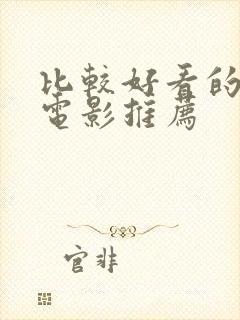 比較好看的
電影推薦
官非